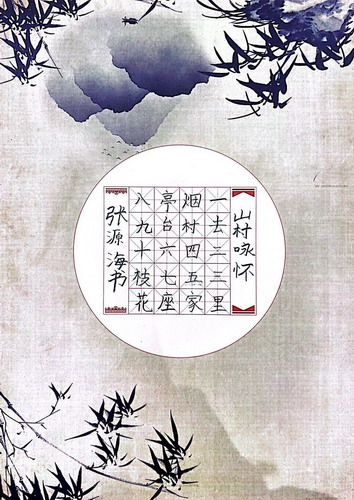 山村咏怀
一去二三里
烟村四五家
亭台六七座
八九十枝花
张源海书